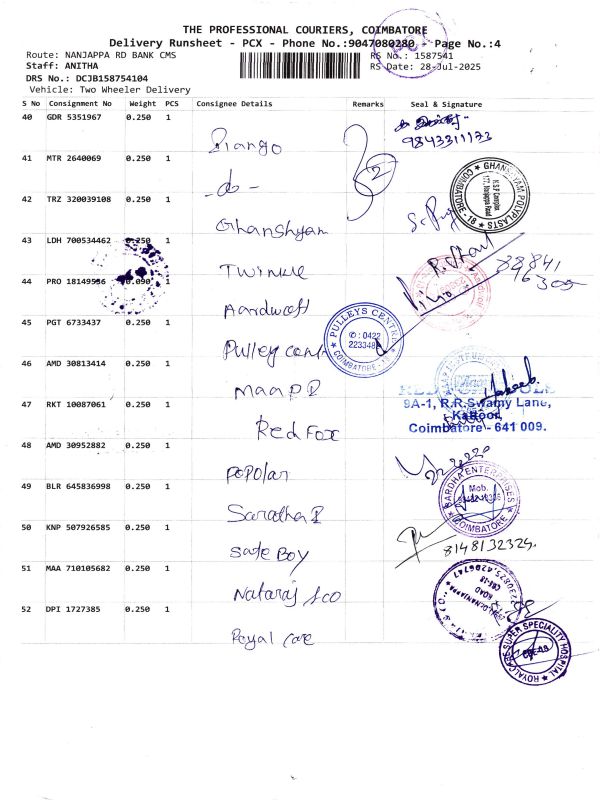 THE PROFESSIONAL COURIERS, COIMBATORE
Delivery Runsheet - PCX - Phone No.:9047080280 - Page No.:4
Route: NANJAPPA RD BANK CMS
RS No.: 1587541
Staff: ANITHA
RS Date: 28-Jul-2025
DRS No.: DCJB158754104
Vehicle: Two Wheeler Delivery
S No Consignment No Weight PCS Consignee Details Remarks Seal & Signature
40 GDR 5351967 0.250 1
9843311173
41 MTR 2640069 0.250 1
-do-
2
GHANSHYAM POLYPLASTS
COIMBATORE - 18
42 TRZ 320039108 0.250 1
Ghanshyam
43 LDH 700534462 0.250 1
Twinkle
44 PRO 18149556 0.090 1
Aardwolf
45 PGT 6733437 0.250 1
Pulley cent
PULLEYS CENTRE
✆ : 0422
COIMBATORE
46 AMD 30813414 0.250 1
47 RKT 10087061 0.250 1
Red Fox
9A-1, R.R.Swamy Lane,
Kattoor,
Coimbatore - 641 009.
48 AMD 30952882 0.250 1
Popolar
49 BLR 645836998 0.250 1
ENTERPRISES
Mob.
COIMBATORE
50 KNP 507926585 0.250 1
Safe Boy
8148132324.
51 MAA 710105682 0.250 1
Nataraj &co
52 DPI 1727385 0.250 1
Royal care
ROYALCARE SUPER SPECIALITY HOSPITAL
CBE-18